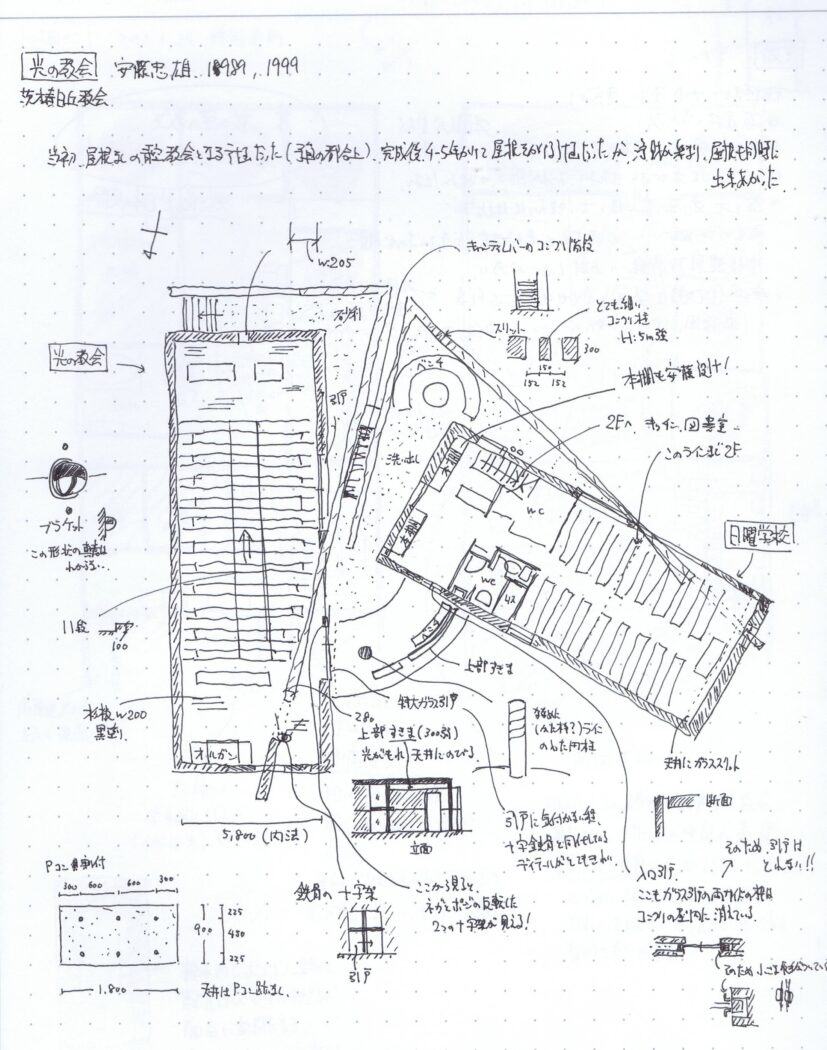 光の教会 安藤忠雄. 1989, 1999
茨木春日丘教会
当初、屋根なしの青空教会となる予定だった(予算の都合上)、完成後、4-5年かけて屋根をかける
屋根も同時に
出来あがった
W:205
キャンティレバーのコンクリ階段
砂利
とても細い
コンクリ柱
H:5m強
スリット
300
150
152 152
光の教会
ベンチ
引戸
本棚も安藤設計!
洗い出し
2Fへ キッチン、図書室
このラインまで2F
本棚
WC
本棚
日曜学校
ブラケット
この形状の
わからない..
WC
ベンチ
11段
100
上部すきま
木板 W200
黒塗り
オルガン
特大ガラス引戸
280
上部すきま(300弱)
光がもれ、天井にのびる
のった円柱
天井にガラススリット
5,800 (内法)
立面
引戸に気付かない程、
断面
そのため、引戸は
とれない!!
入口引戸
ここもガラス引戸の両サイドの枠は
コンクリの壁内に消えている
Pコン
300 600 600 300
225
900 450
225
1.800
天井はPコン
鉄骨の十字架
引戸
ここから見ると、
ネガとポジの反転した
2つの十字架が見える!